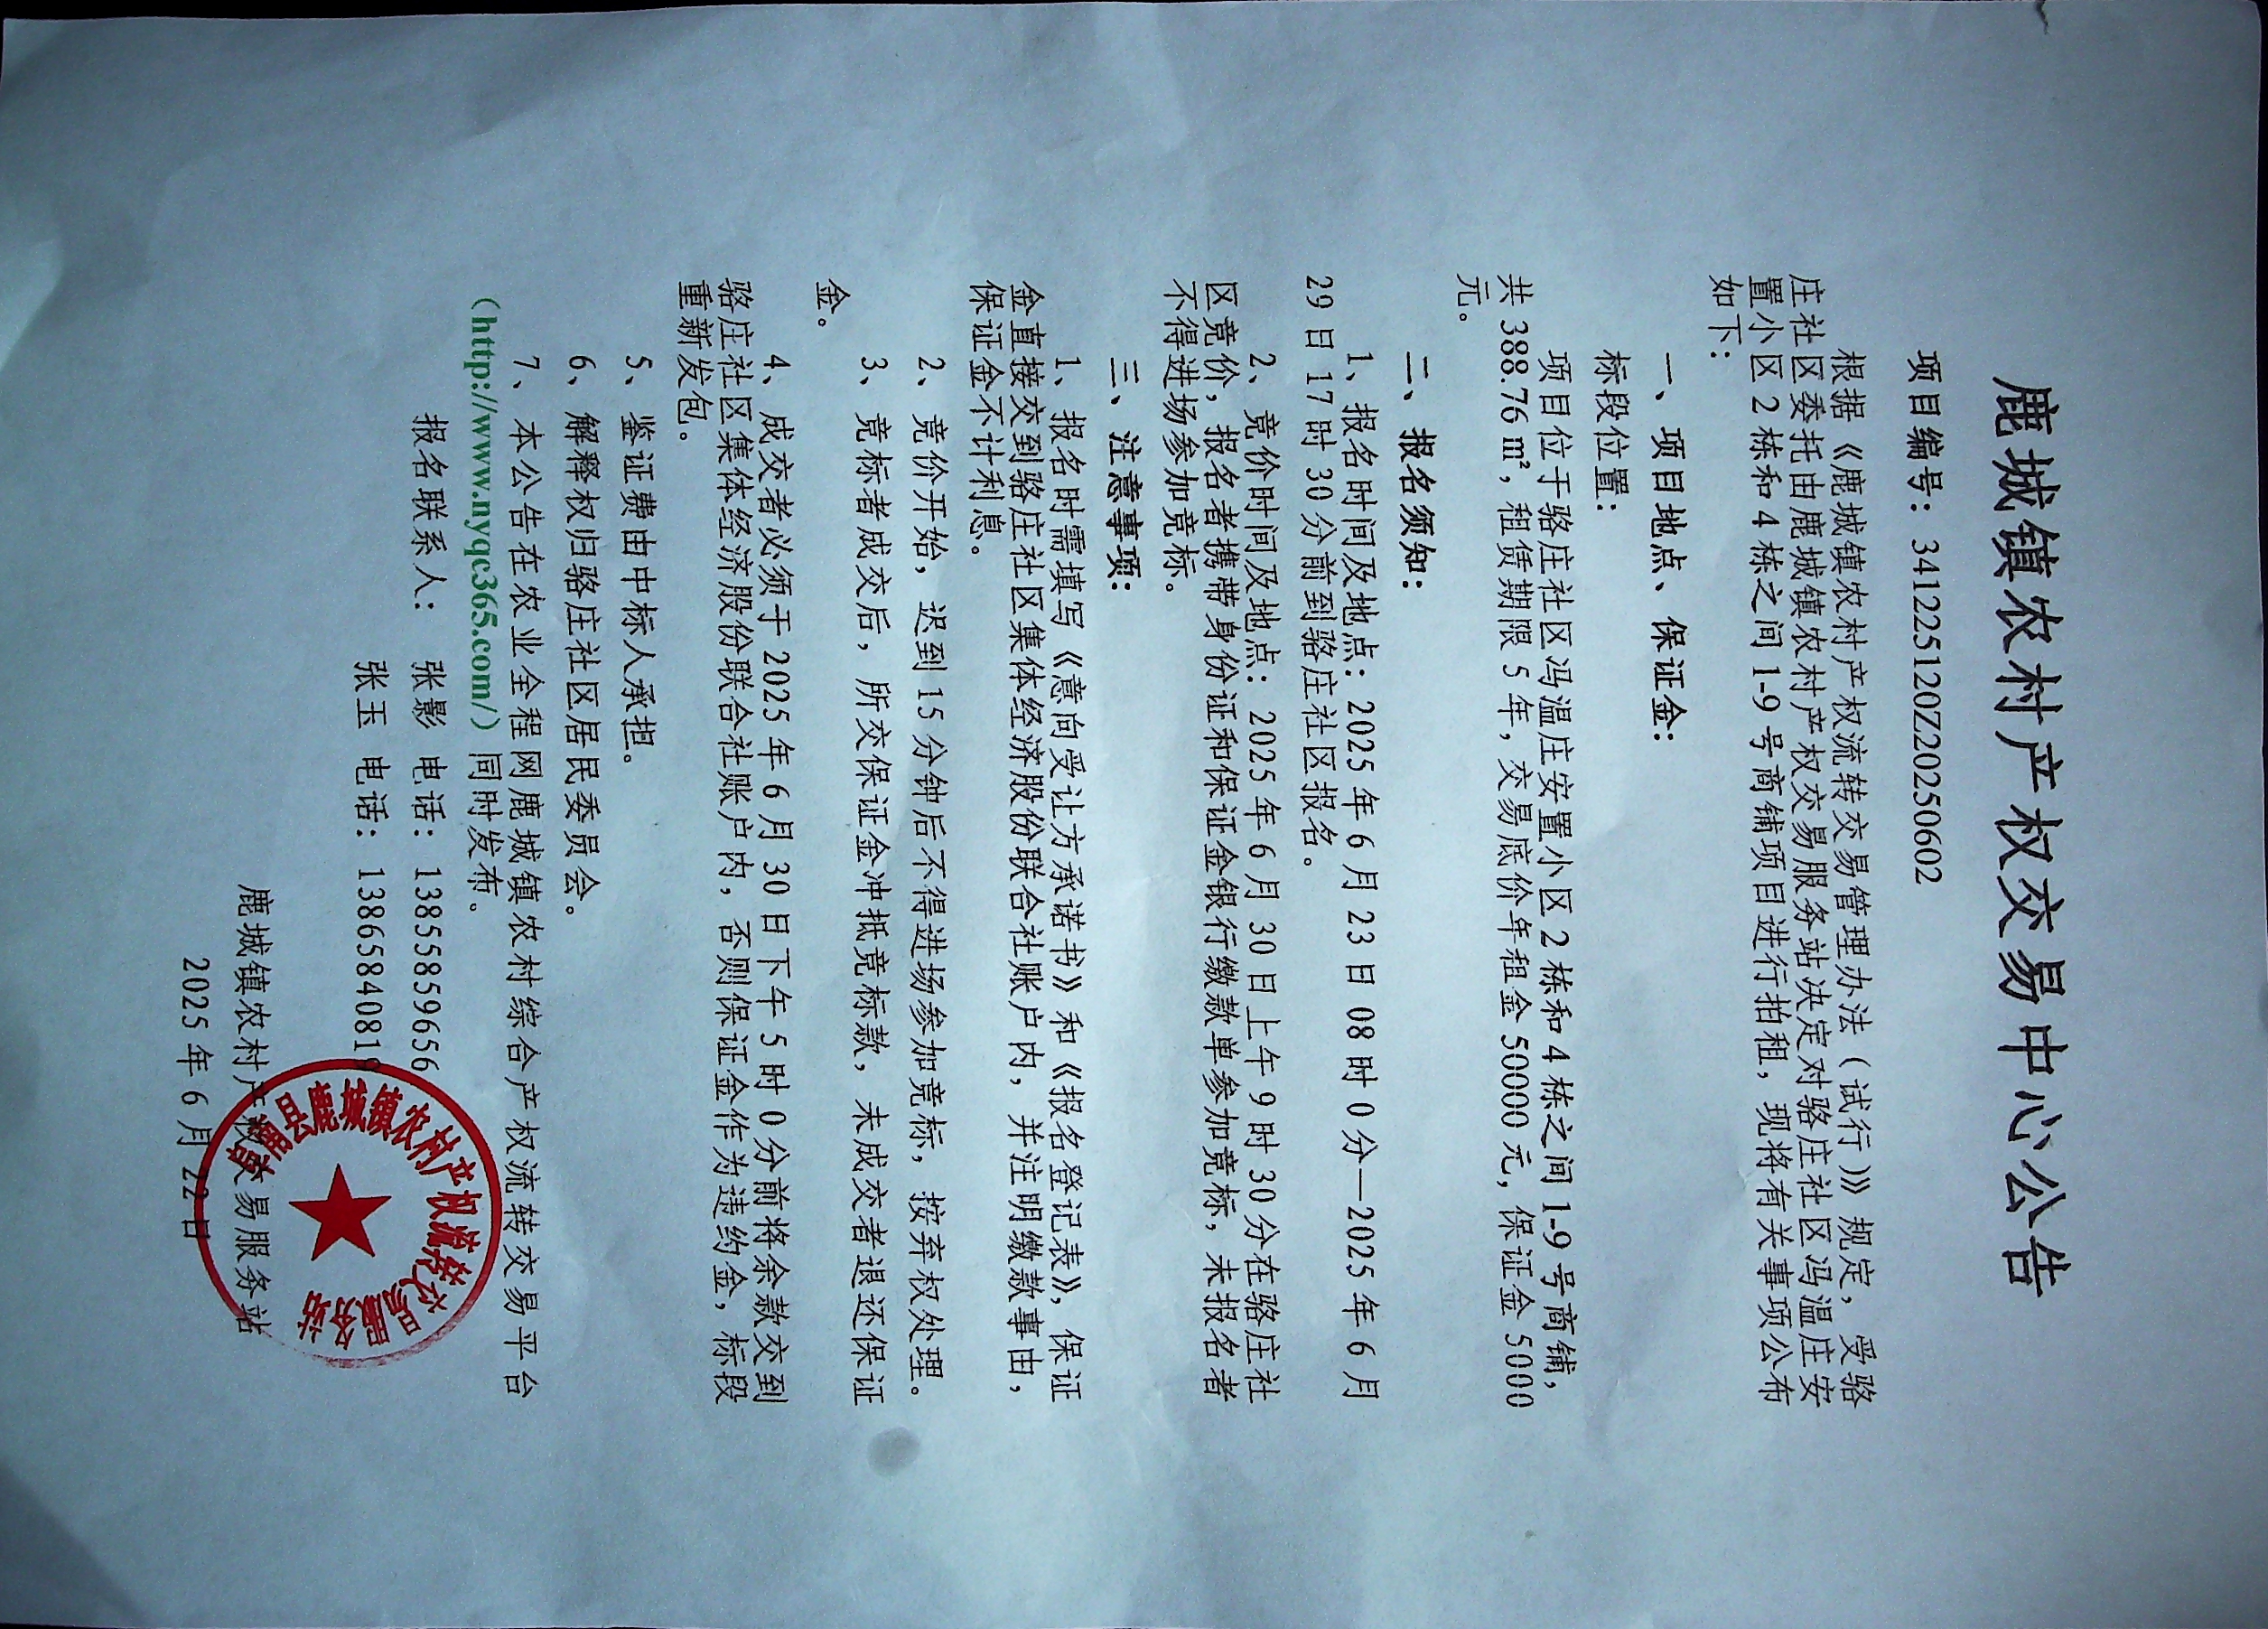 鹿城镇农村产权交易中心公告
项目编号：341225120Z20250602
根据《鹿城镇农村产权流转交易管理办法（试行）》规定，受骆
庄社区委托由鹿城镇农村产权交易服务站决定对骆庄社区冯温庄安
置小区2栋和4栋之间1-9号商铺项目进行拍租，现将有关事项公布
如下：
一、项目地点、保证金：
标段位置：
项目位于骆庄社区冯温庄安置小区2栋和4栋之间1-9号商铺，
共388.76㎡，租赁期限5年，交易底价年租金50000元，保证金5000
元。
二、报名须知：
1、报名时间及地点：2025年6月23日08时0分—2025年6月
29日17时30分前到骆庄社区报名。
2、竞价时间及地点：2025年6月30日上午9时30分在骆庄社
区竞价，报名者携带身份证和保证金银行缴款单参加竞标，未报名者
不得进场参加竞标。
三、注意事项：
1、报名时需填写《意向受让方承诺书》和《报名登记表》，保证
金直接交到骆庄社区集体经济股份联合社账户内，并注明缴款事由，
保证金不计利息。
2、竞价开始，迟到15分钟后不得进场参加竞标，按弃权处理。
3、竞标者成交后，所交保证金冲抵竞标款，未成交者退还保证
金。
4、成交者必须于2025年6月30日下午5时0分前将余款交到
骆庄社区集体经济股份联合社账户内，否则保证金作为违约金，标段
重新发包。
5、鉴证费由中标人承担。
6、解释权归骆庄社区居民委员会。
7、本公告在农业全程网鹿城镇农村综合产权流转交易平台
（http://www.nyqc365.com/）同时发布。
报名联系人： 张影 电话：13855859656
张玉 电话：13865840819
鹿城镇农村产权交易服务站
2025年6月22日
阜南县鹿城镇农村产权流转交易服务站